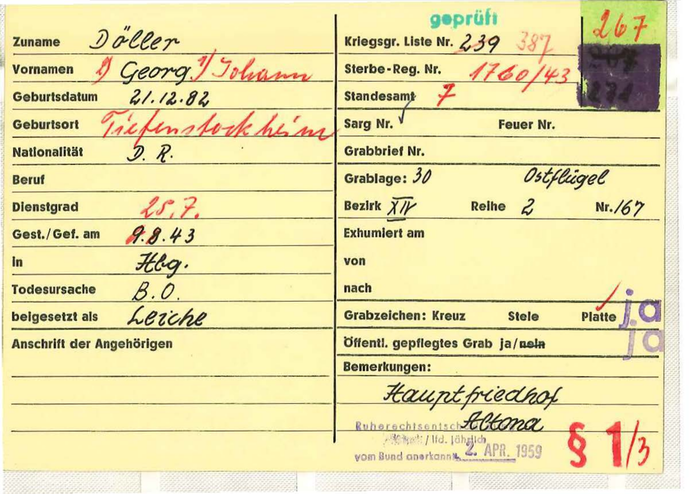 geprüft
267
Zuname Döller
Vornamen 2) Georg 1) Johann
Geburtsdatum 21.12.82
Geburtsort Tiefenstockheim
Nationalität D. R.
Beruf
Dienstgrad 25.7.
Gest./Gef. am 9.8.43
in Hbg.
Todesursache B.O.
beigesetzt als Leiche
Anschrift der Angehörigen
Kriegsgr. Liste Nr. 239 387
Sterbe-Reg. Nr. 1760/43
Standesamt 7
Sarg Nr. Feuer Nr.
Grabbrief Nr.
Grablage: 30 Ostflügel
Bezirk XIV Reihe 2 Nr. 167
Exhumiert am
von
nach
Grabzeichen: Kreuz Stele Platte ja
Öffentl. gepflegtes Grab ja/nein ja
Bemerkungen:
Hauptfriedhof
Altona
/ lfd. jährlich
vom Bund anerkannt 2. APR. 1959
§ 1/3